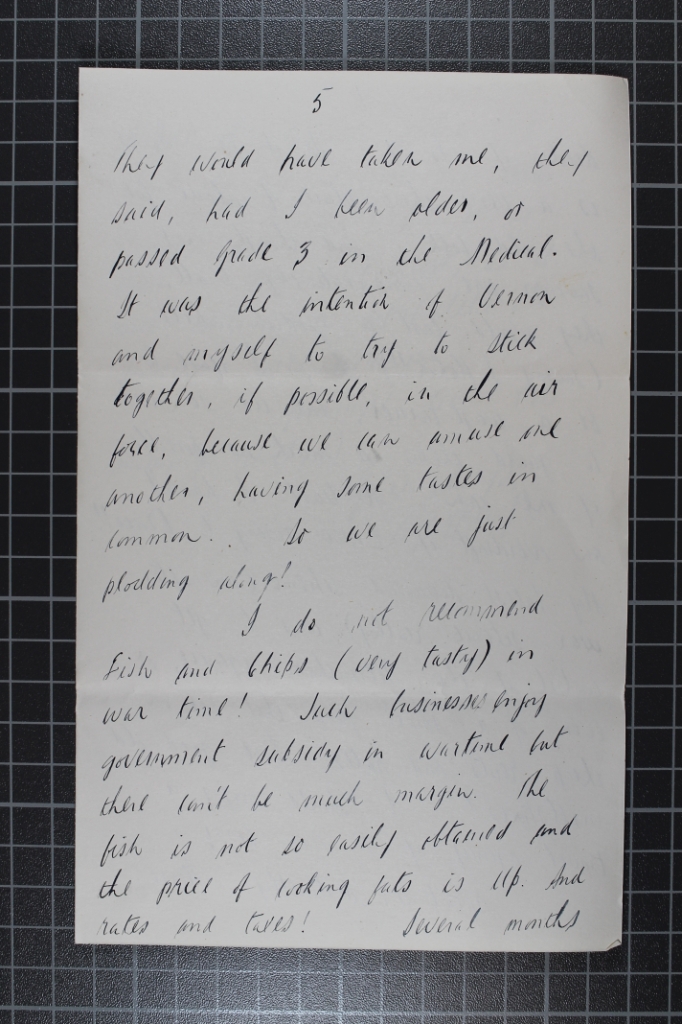 5
They would have taken me, they
said, had I been older, or
passed Grade 3 in the Medical.
It was the intention of Vernon
and myself to try to stick
together, if possible, in the air
force, because we can amuse one
another, having some tastes in
common.. So we are just
plodding along!
I do not recommend
Fish and Chips (very tasty) in
war time! Such businesses enjoy
government subsidy in wartime but
there can't be much margin. The
fish is not so easily obtained and
the price of cooking fats is up. And
rates and taxes! Several months